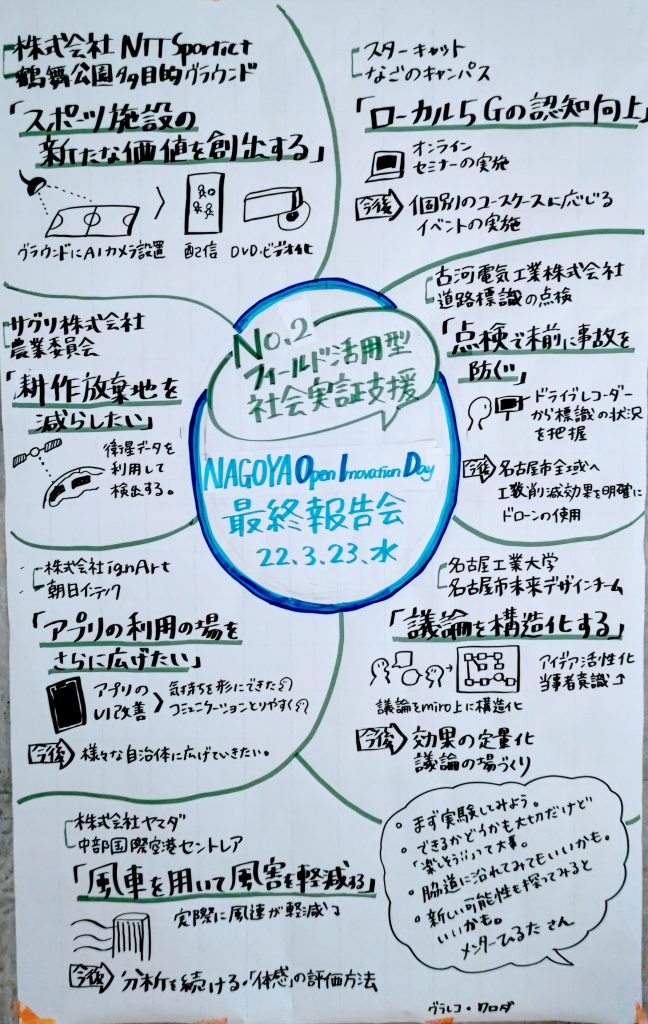 株式会社 NTTSportict
鶴舞公園多目的グラウンド
「スポーツ施設の
新たな価値を創出する」
グラウンドにAIカメラ設置
配信
DVD・ビデオ化
スターキャット
なごのキャンパス
「ローカル5Gの認知向上」
オンライン
セミナーの実施
今後
個別のユースケースに応じる
イベントの実施
サグリ株式会社
農業委員会
「耕作放棄地を
減らしたい」
衛星データを
利用して
検出する。
No.2
フィールド活用型
社会実証支援
NAGOYA Open Innovation Day
最終報告会
22.3.23.水
古河電気工業株式会社
道路標識の点検
「点検で未前に事故を
防ぐ」
ドライブレコーダー
から標識の状況
を把握
今後
名古屋市全域へ
工数削減効果を明確に
ドローンの使用
株式会社ignArt
朝日インテック
「アプリの利用の場を
さらに広げたい」
アプリの
UI改善
気持ちを形にできた
コミュニケーションとりやすく
今後
様々な自治体に広げていきたい。
名古屋工業大学
名古屋市未来デザインチーム
「議論を構造化する」
議論をmiro上に構造化
アイデア活性化
当事者意識↑
今後
効果の定量化
議論の場づくり
株式会社ヤマダ
中部国際空港セントレア
「風車を用いて風害を軽減する」
実際に風速が軽減
今後
分析を続ける・「体感」の評価方法
・まず実験してみよう。
・できるかどうかも大切だけど
「楽しそう」って大事。
・脇道に沿れてみてもいいかも。
・新しい可能性も探ってみると
いいかも。
メンターひるたさん
グラレコ・クロダ